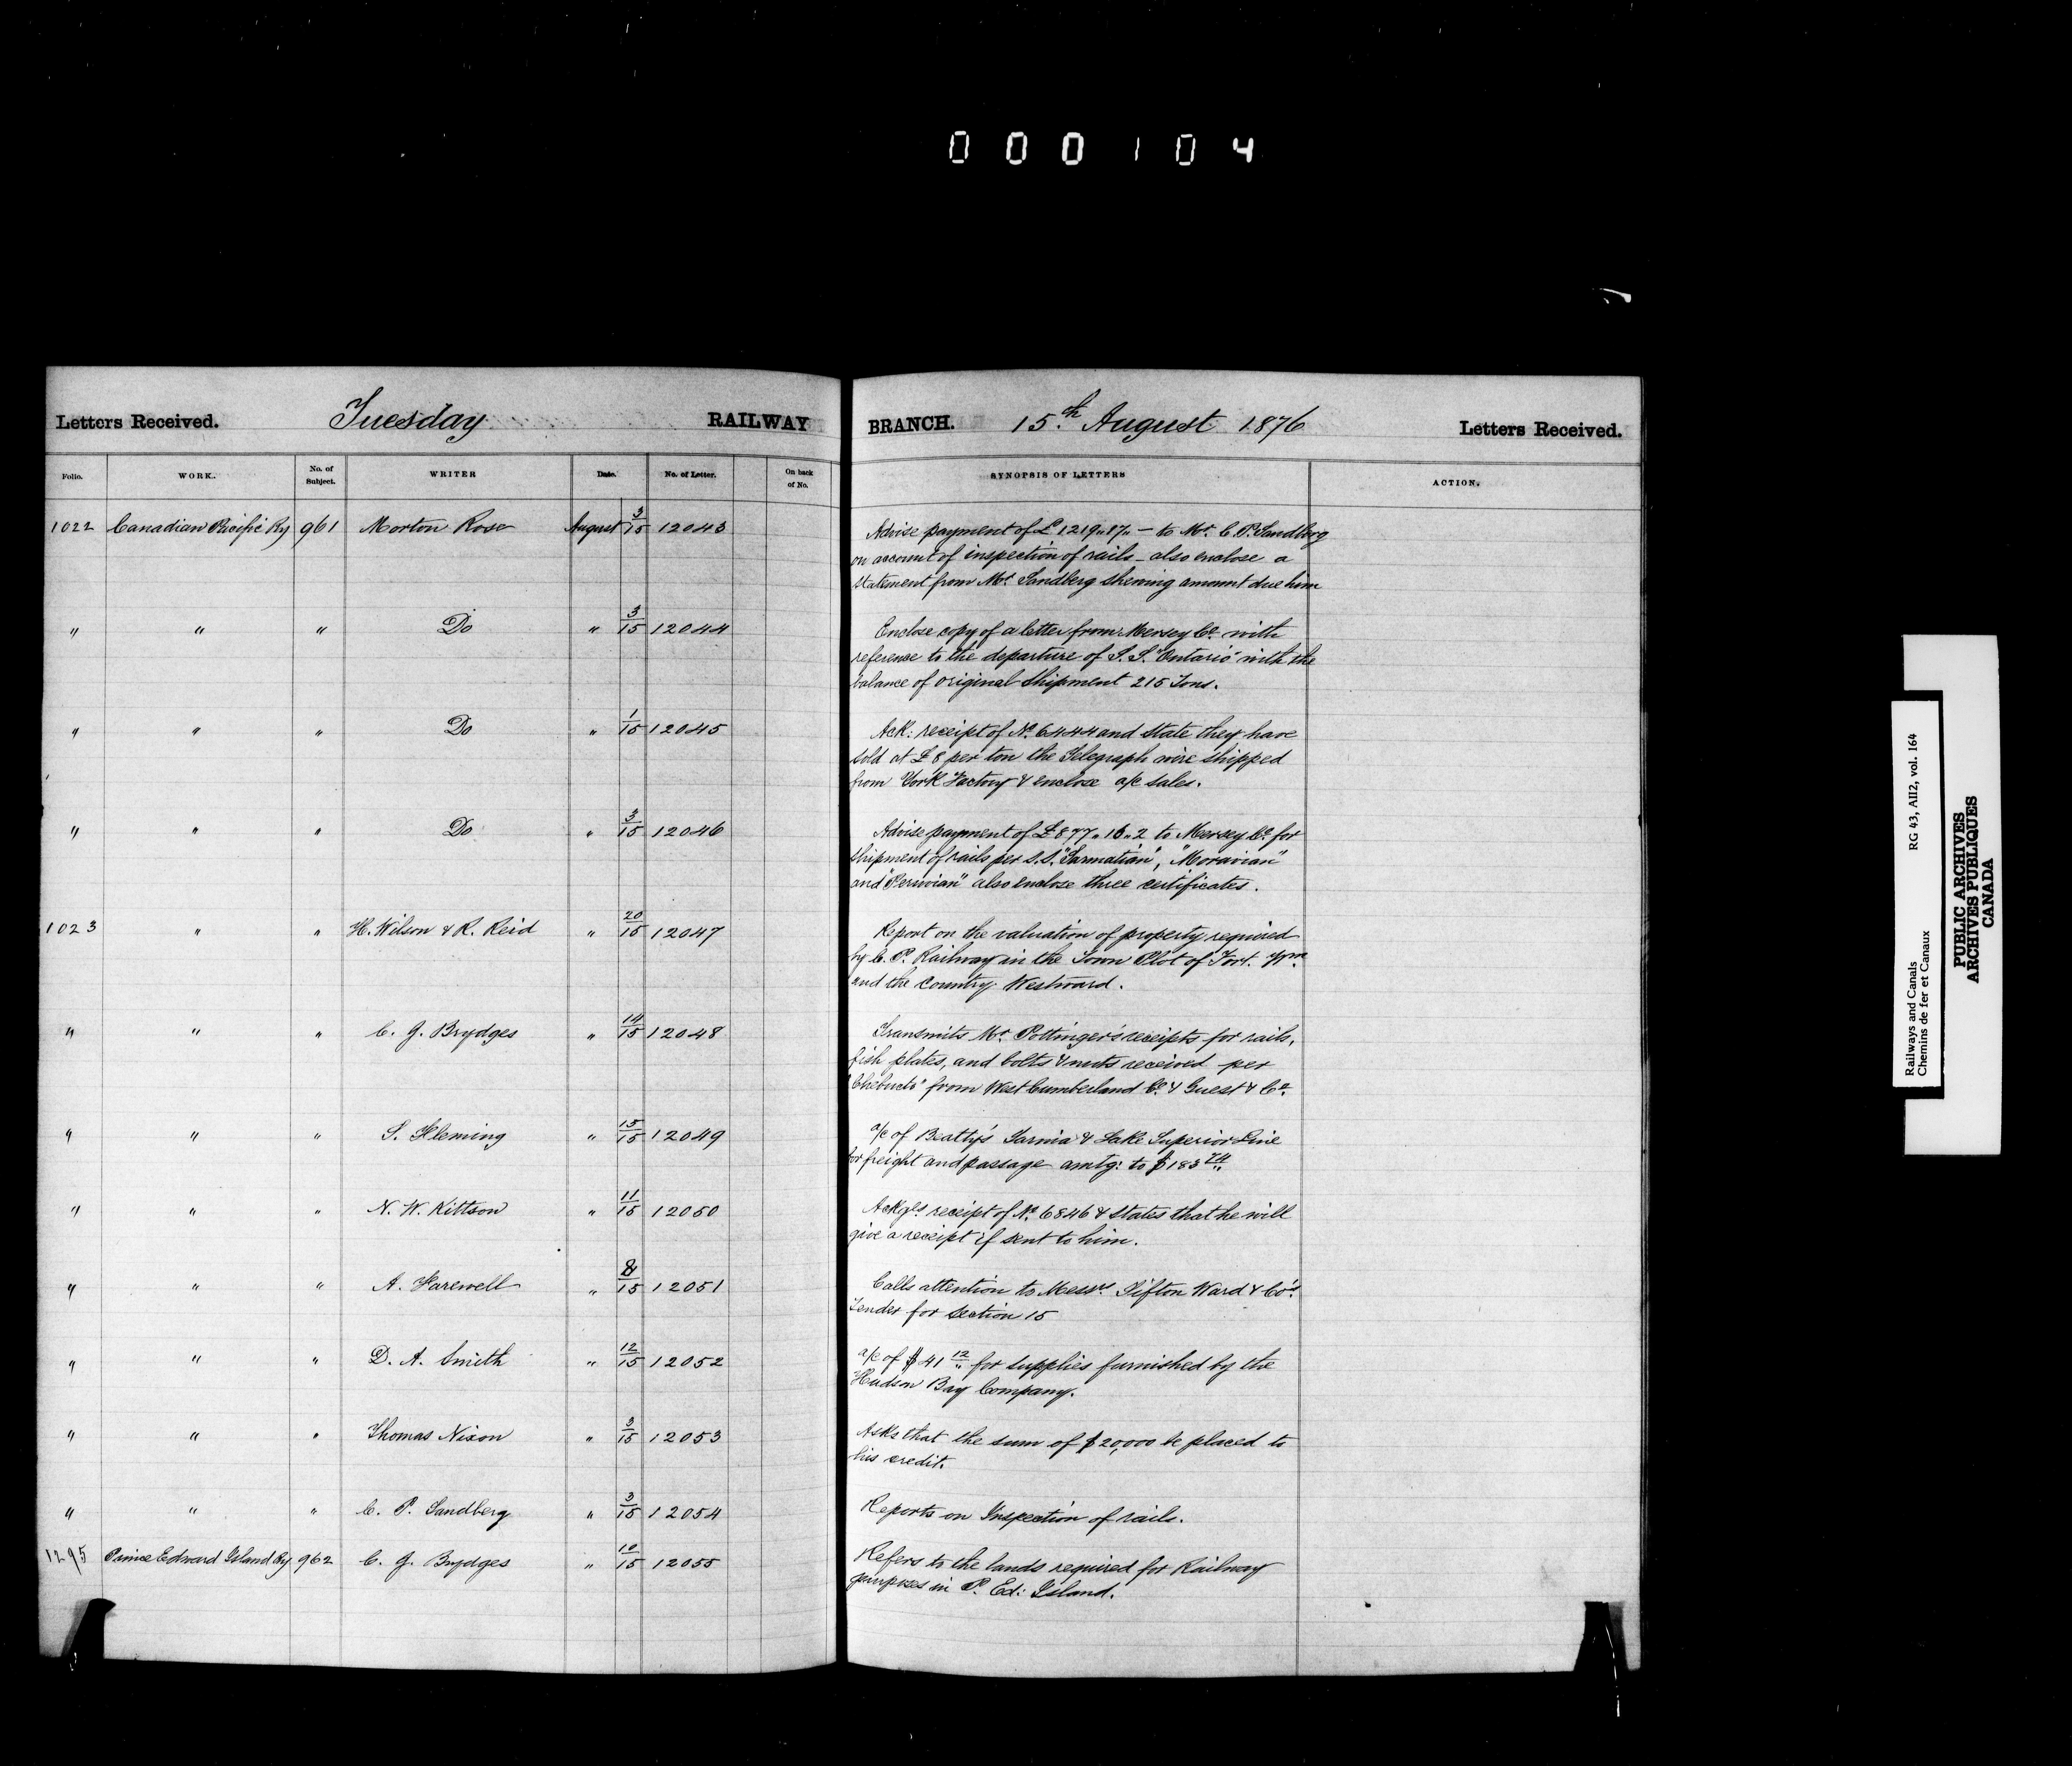 000104
Letters Received. Tuesday RAILWAY BRANCH. 15th August 1876 Letters Received.
Folio. WORK. No. of Subject. WRITER Date. No. of Letter. On back of No. SYNOPSIS OF LETTERS ACTION.
1022 Canadian Pacific Ry 961 Morton Rose August 3/15 12043 Advise payment of £1219,,17,,— to Mr. C. P. Sandberg
on account of inspection of rails – also enclose a
statement from Mr. Sandberg shewing amount due him
" " " Do " 3/15 12044 Enclose copy of a letter from Mersey Co. with
reference to the departure of S.S. "Ontario" with the
balance of original shipment 215 Tons.
" " " Do " 1/15 12045 Ack: receipt of No. 6444 and state they have
sold at £8 per ton the Telegraph wire shipped
from York Factory & enclose a/c sales.
" " " Do " 3/15 12046 Advise payment of £877,,16,,2 to Mersey Co. for
shipment of rails per S.S. "Sarmatian", "Moravian"
and "Peruvian" also enclose three certificates.
1023 " " H. Wilson & R. Reid " 20/15 12047 Report on the valuation of property required
by C. P. Railway in the Town Plot of Fort. Wm.
and the Country Westward.
" " " C. J. Brydges " 14/15 12048 Transmits Mr. Pottinger's receipts for rails,
fish plates, and bolts & nuts received per
"Chebucto" from West Cumberland Co. & Guest & Co.
" " " S. Fleming " 15/15 12049 a/c of Beatty's Sarnia & Lake Superior Line
for freight and passage amtg: to $183 74
" " " N. W. Kittson " 11/15 12050 Ackgs. receipt of No. 6846 & states that he will
give a receipt if sent to him.
" " " A. Farewell " 8/15 12051 Calls attention to Messrs. Sifton Ward & Co's.
Tender for Section 15
" " " D. A. Smith " 12/15 12052 a/c of $41 12 for supplies furnished by the
Hudson Bay Company.
" " " Thomas Nixon " 3/15 12053 Asks that the sum of $20,000 be placed to
his credit.
" " " C. P. Sandberg " 3/15 12054 Reports on Inspection of rails.
1295 Prince Edward Island Ry 962 C. J. Brydges " 10/15 12055 Refers to the lands required for Railway
purposes in P. Ed: Island.
Railways and Canals RG 43, AII2, vol. 164
Chemins de fer et Canaux
PUBLIC ARCHIVES
ARCHIVES PUBLIQUES
CANADA